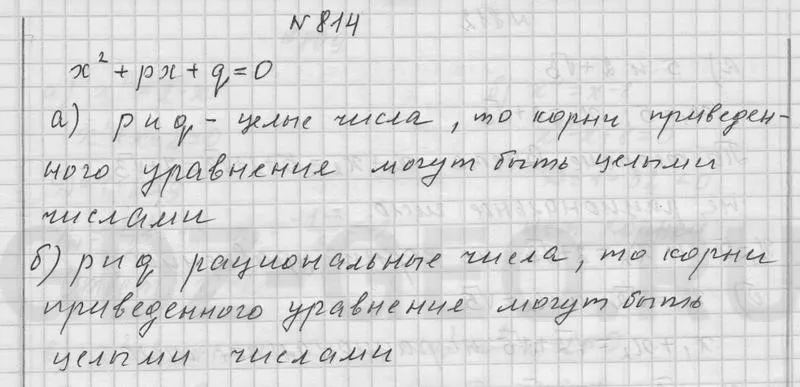 № 814
x² + px + q = 0
а) p и q - целые числа, то корни приведен-
ного уравнения могут быть целыми
числами
б) p и q рациональные числа, то корни
приведенного уравнения могут быть
целыми числами